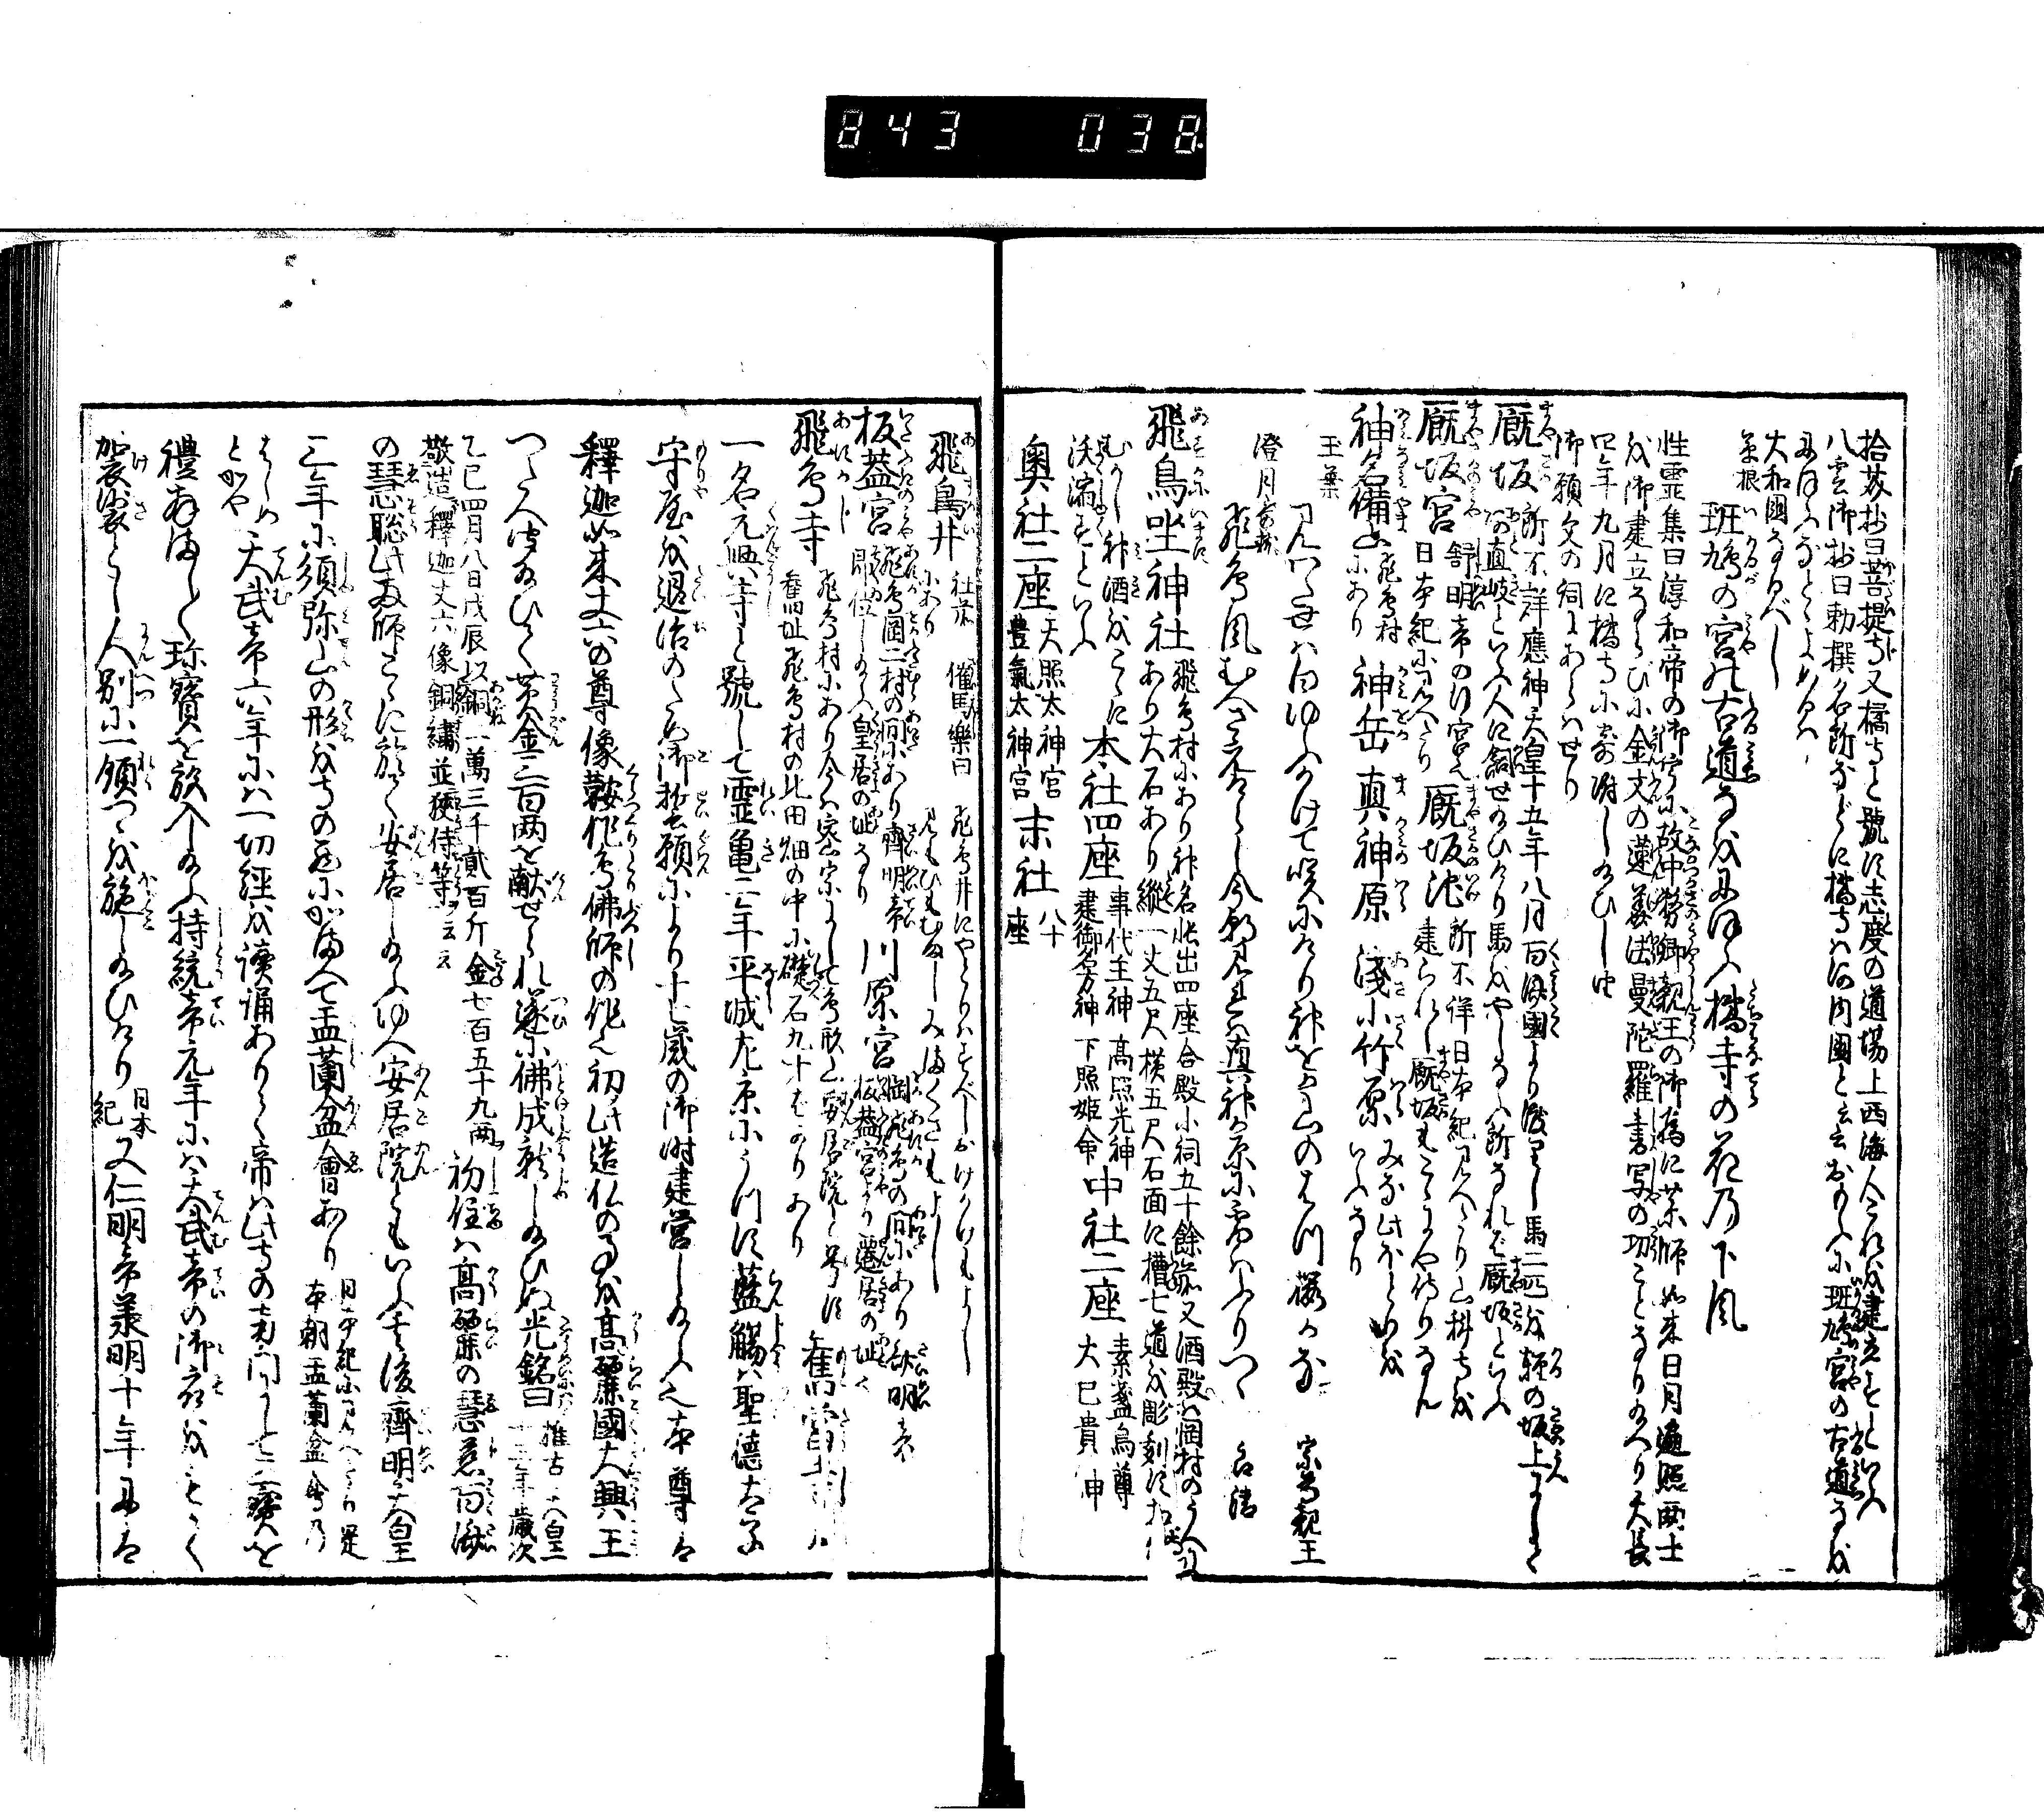 843 038
拾芥抄曰菩提寺又橘寺と號す志度の道場上西海人これを建立すといへり
八雲御抄曰勅撰名所などに橘寺は河内國と云云おもふに班鳩宮の古道なを
にほふなとゝよめるは
大和國なるべし
班鳩の宮の古道なをにほふ橘寺の花乃下風
性霊集曰淳和帝の御宇に故中務卿親王の御為に薬師如来日月遍照両士
を御建立ならびに金文の蓮華法曼陀羅書写の功ことなり給へり天長
四年九月に橘寺に寄附し給ひし
御願文の詞にあらはせり
厩坂 所不詳應神天皇十五年八月百済國より渡せし馬二匹を軽の坂上にして
阿直岐といふ人に飼せ給ひけり馬をやしなふ所なれば厩坂といふ
厩坂宮 舒明帝の行宮也日本紀に見へたり
厩坂池 所不詳日本紀見へたり山科寺を
建られし厩坂もこゝにや侍りなん
神名備山 飛鳥村にあり
神岳 真神原 淺小竹原 みな此ほとりを
いふなり
玉葉
見わたせは白ゆふかけて咲にけり神をか山のはつ櫻かな 宗尊親王
澄月哥枕
飛鳥坐神社 飛鳥村にあり神名帳出四座合殿小祠五十餘
あり大石あり縱一丈五尺横五尺石面に槽七道を彫刻す
むかし神酒をこゝに
本社四座 事代主神 高照光神
建御名方神 下照姫命
中社二座 素盞烏尊
大己貴神
奥社二座 天照太神宮
豊氣太神宮
末社 八十
座
飛鳥井 社前
にあり 催馬樂曰 飛鳥井にやとりはすべしかけもよし
みもひもさむしみまくさもよし
板蓋宮 飛鳥岡二村の間にあり齊明帝
即位し給ふ皇居の址なり
川原宮 岡飛鳥の間にあり齊明帝
板蓋宮より遷居の址也
飛鳥寺 飛鳥村にあり今は密宗にして鳥形山安居院と号す
舊址飛鳥村の北田畑の中に礎石九十ばかりあり
一名元興寺と號して霊亀二年平城左京にうつす藍觴は聖徳太子
守屋を退治のため御誓願により十七歳の御時建営し給ふ也本尊は
釋迦如来丈六の尊像鞍作鳥佛師の作也初此造仏の事を高麗國大興王
つたへ聞給ひて黄金三百両を献ぜられ遂に佛成就し給ひぬ光銘曰 推古天皇
十三年歳次
乙巳四月八日戊辰以銅二萬三千貳百斤金七百五十九両
敬造釋迦丈六像銅繍並挾侍等云云
初住は高麗の慧慈百済
の慧聡此両師こゝに於て安居し給ふゆへ安居院ともいふ其後齊明天皇
三年に須弥山の形を寺の西にかまへて盂蘭盆會あり 日本紀に見へたり是
本朝盂蘭盆會乃
はじめ
とかや
天武帝六年には一切經を讀誦ありて帝は此寺の南門にして三寶を
禮拝ましく珍寶を放入し給ふ持統帝元年には天武帝の御衣をもつて
袈裟とし人別に一領つゝを施し給ひけり 日本
紀 又仁明帝の承明十年には